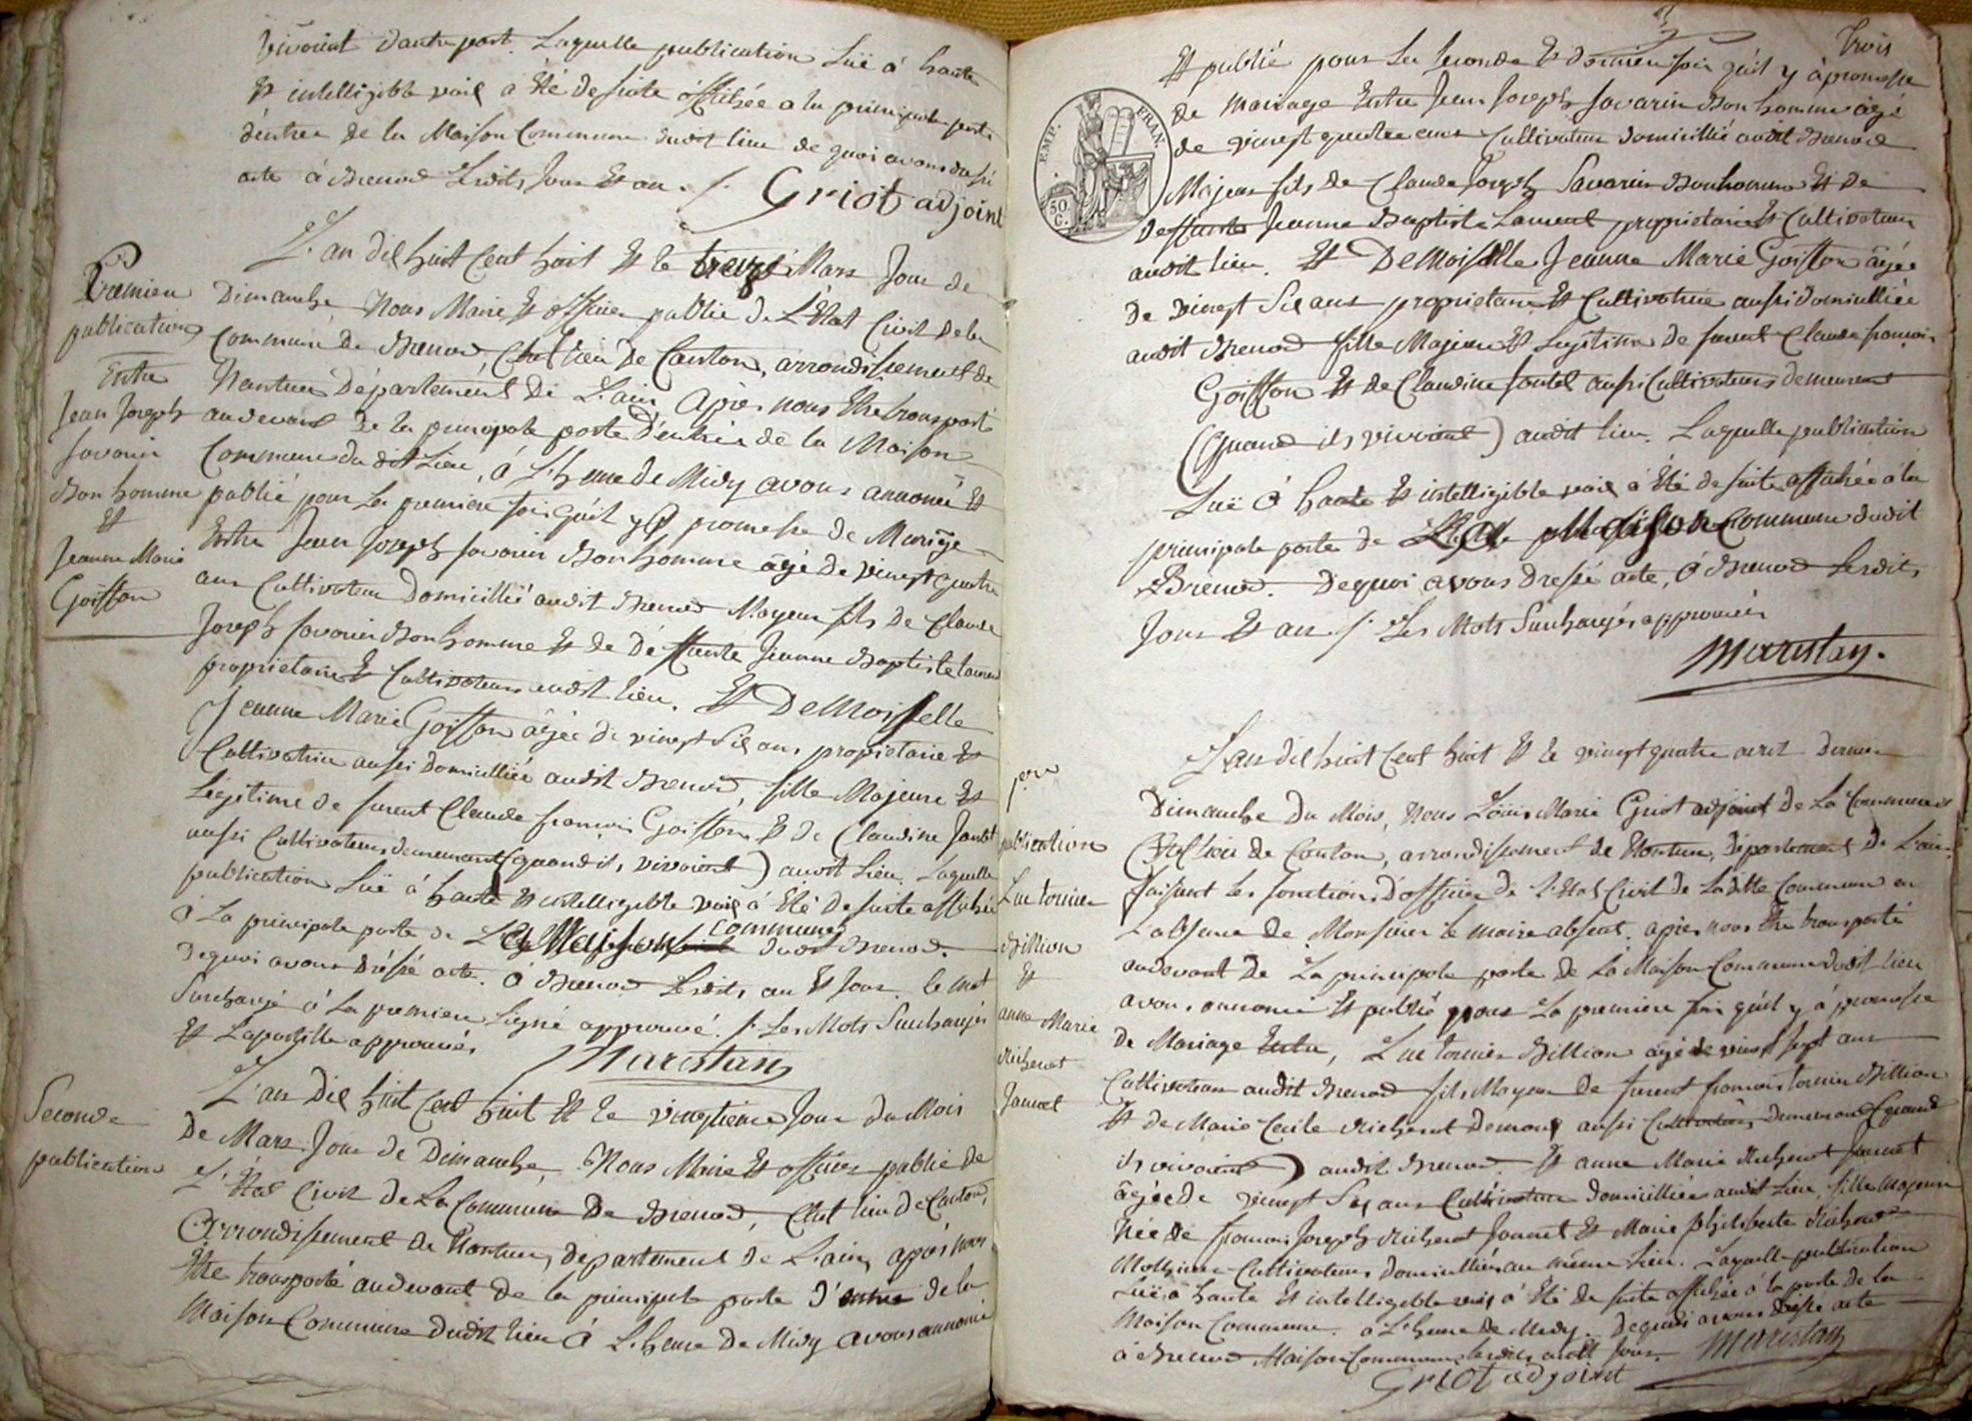 vivoient d'autre part. Laquelle publication Luë à haute
et intelligible voix a Été de suite affichée a la principale porte
d'entrée de la Maison Commune dudit lieu de quoi avons dressé
acte à Brenod Lesdits Jour Et an. /.
Griot adjoint
Premiere
publication
Entre
Jean Joseph
Savarin
Bonhomme
Et
Jeanne Marie
Goiffon
L'an dix huit Cent huit Et le treize Mars Jour de
Dimanche, Nous Maire Et officier public de L'Etat Civil de la
Commune de Brenod, Chef lieu de Canton, arrondissement de
Nantua Département de L'ain, Après nous Etre transporté
audevant de la principale porte d'entrée de la Maison
Commune du dit Lieu, á L'heure de Midy avons annoncé Et
publié pour La premiere fois qu'il y a promesse de Mariage
Entre Jean Joseph Savarin Bonhomme âgé de vingt quatre
ans Cultivateur Domicillié audit Brenod Majeur fils de Claude
Joseph Savarin Bonhomme Et de Déffunte Jeanne Baptiste Laurent
proprietaires Et Cultivateurs audit lieu. Et DeMoiselle
Jeanne Marie Goiffon âgée de vingt Six ans, proprietaire Et
Cultivatrice aussi Domicilliée audit Brenod, fille Majeure Et
Légitime de furent Claude françois Goiffon Et de Claudine Joutel
aussi Cultivateurs demeurant (quand ils vivoient) audit Lieu. Laquelle
publication Luë à haute Et intelligible voix a Été De suite affichée
á La principale porte de La Maison Commune dudit Brenod.
Dequoi avons dréssé acte. á Brenod Lesdits an Et Jour. le mot
Surchargé á La premiere Ligne approuvé. /. Les Mots Surchargés
Et Lapostille approuvés
Maristan
Seconde
publication
L'an Dix huit Cent huit Et le vingtieme Jour du Mois
De Mars Jour de Dimanche, Nous Maire Et officier public de
L'Etat Civil de La Commune De Brenod, Chef lieu de Canton,
Arrondissement de Nantua, departement de L'ain, après nous
Etre transporté audevant de la principale porte d'entrée de la
Maison Commune dudit lieu á L'heure De Midy avons annoncé
3
Trois
EMP. FRAN.
50. C.
Et publié pour La Seconde Et derniere fois qu'il y á promesse
de Mariage Entre Jean Joseph Savarin Bonhomme âgé
de vingt quatre ans Cultivateur Domicillié audit Brenod
Majeur fils de Claude Joseph Savarin Bonhomme Et de
Deffunte Jeanne Baptiste Laurent proprietaires Et Cultivateurs
audit lieu. Et DeMoiselle Jeanne Marie Goiffon âgée
De Vingt Six ans proprietaire Et Cultivatrice aussi domicilliée
audit Brenod fille Majeure Et Legitime de furent Claude françois
Goiffon Et de Claudine Joutel aussi Cultivateurs demeurant
(Quand ils vivoient) audit lieu. Laquelle publication
Luë á haute Et intelligible voix á Été de suite affichée á la
principale porte de La Maison Commune dudit
Brénod. Dequoi avons Dressé acte, á Brenod Lesdits
Jour Et an /. Les Mots Surchargés approuvés
Maristan.
1ere
publication
Luc tornier
Billion
Et
anne Marie
Richerot
Jannet
L'an dix huit Cent huit Et le vingt quatre avril dernier
Dimanche du Mois, Nous Loüis Marie Griot adjoint de La Commune
Chef lieu de Canton, arrondissement de Nantua, Département de L'ain
faisant les fonctions d'officier de L'Etat Civil de Laditte Commune en
L'absence de Monsieur le maire absent. après nous Etre transporté
audevant De La principale porte de La Maison Commune dudit lieu
avons annoncé Et publié pour La premiere fois qu'il y á promesse
de Mariage Entre, Luc tornier Billion âgé de vingt sept ans
Cultivateur audit Brenod fils Majeur de furent françois tornier Billion
Et de Marie Cecile Richerot aussi Cultivateurs Demeurant (quand
ils vivoient) audit Brenod. Et anne Marie Richerot Jannet
âgée de vingt Six ans Cultivatrice domicilliée audit Lieu, fille Majeure
Née de françois Joseph Richerot Jannet Et Marie philiberte Richerot
Cultivateurs domicilliés au même Lieu. Laquelle publication
Luë á haute Et intelligible voix á Été de suite affichée á la porte de la
Maison Commune. a L'heure de Midy. Dequoi avons dréssé acte
á Brenod Maison Commune, lesdits an Et Jour. Maristan
Griot adjoint